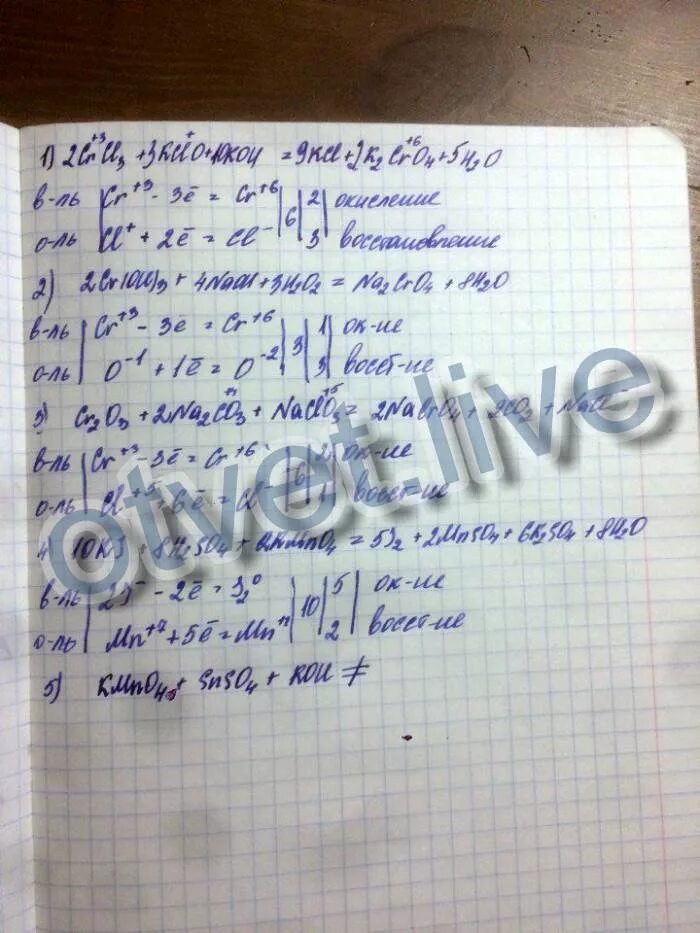 1) 2Cr⁺³Cl₃ + 3KCl⁺O + 10KOH = 9KCl + 2K₂Cr⁺⁶O₄ + 5H₂O
в-ль | Cr⁺³ - 3ē = Cr⁺⁶ | 6 | 2 | окисление
о-ль | Cl⁺ + 2ē = Cl⁻ | 3 | восстановление
2) 2Cr(OH)₃ + 4NaOH + 3H₂O₂ = Na₂CrO₄ + 8H₂O
в-ль | Cr⁺³ - 3ē = Cr⁺⁶ | 3 | 1 | ок-ие
о-ль | O⁻¹ + 1ē = O⁻² | 3 | восст-ие
3) Cr₂O₃ + 2Na₂CO₃ + NaCl⁺⁵O₃ = 2NaCrO₄ + 2CO₂ + NaCl
в-ль | Cr⁺³ - 3ē = Cr⁺⁶ | 6 | 2 | ок-ие
о-ль | Cl⁺⁵ + 6ē = Cl⁻ | 1 | восст-ие
4) 10KJ + 8H₂SO₄ + 2KMnO₄ = 5J₂ + 2MnSO₄ + 6K₂SO₄ + 8H₂O
в-ль | 2J⁻ - 2ē = J₂⁰ | 10 | 5 | ок-ие
о-ль | Mn⁺⁷ + 5ē = Mn | 2 | восст-ие
5) KMnO₄ + SnSO₄ + KOH ≠
otvet.live